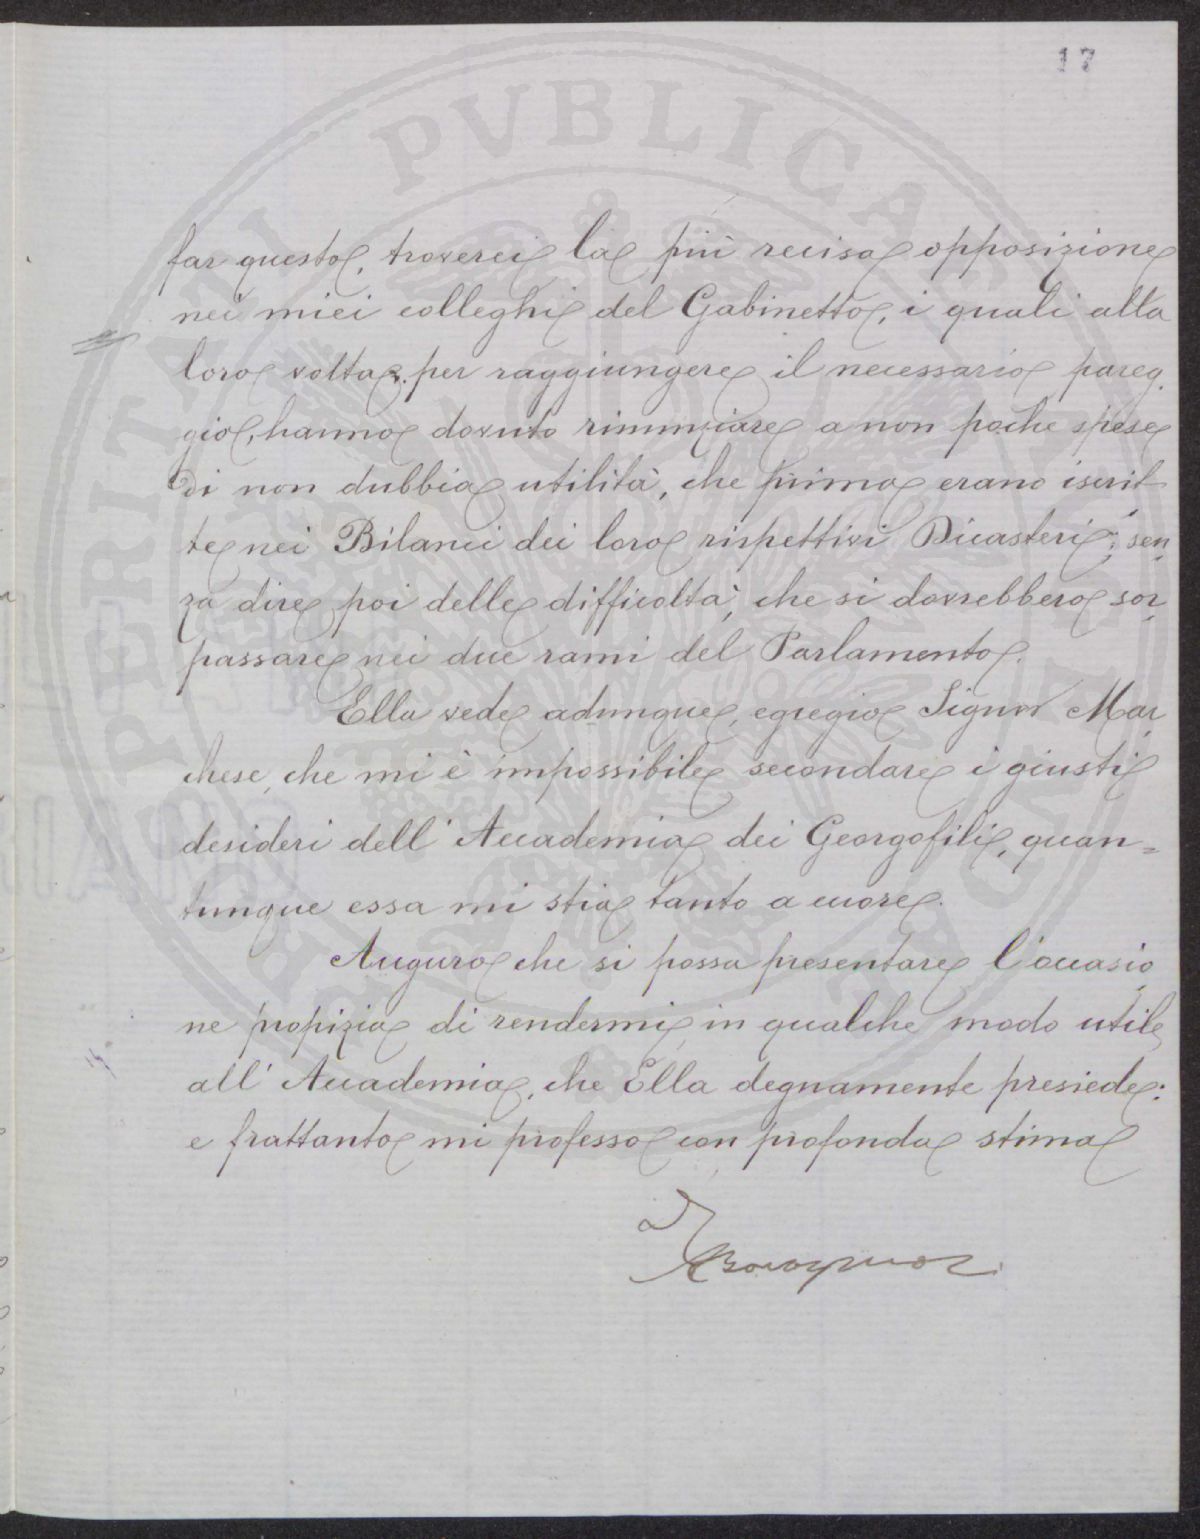 17
far questo, troverei la più recisa opposizione
nei miei colleghi del Gabinetto, i quali alla
loro volta, per raggiungere il necessario pareg-
gio, hanno dovuto rinunziare a non poche spese
di non dubbia utilità, che prima erano iscrit-
te nei Bilanci dei loro rispettivi Dicasteri; sen-
za dire poi delle difficoltà, che si dovrebbero sor-
passare nei due rami del Parlamento.
Ella vede adunque, egregio Signor Mar-
chese, che mi è impossibile secondare i giusti
desideri dell'Accademia dei Georgofili, quan=
tunque essa mi stia tanto a cuore.
Auguro che si possa presentare l'occasio-
ne propizia di rendermi in qualche modo utile
all'Accademia, che Ella degnamente presiede:
e frattanto mi professo con profonda stima
PROSPERITATI PVBLICAE AVGENDAE